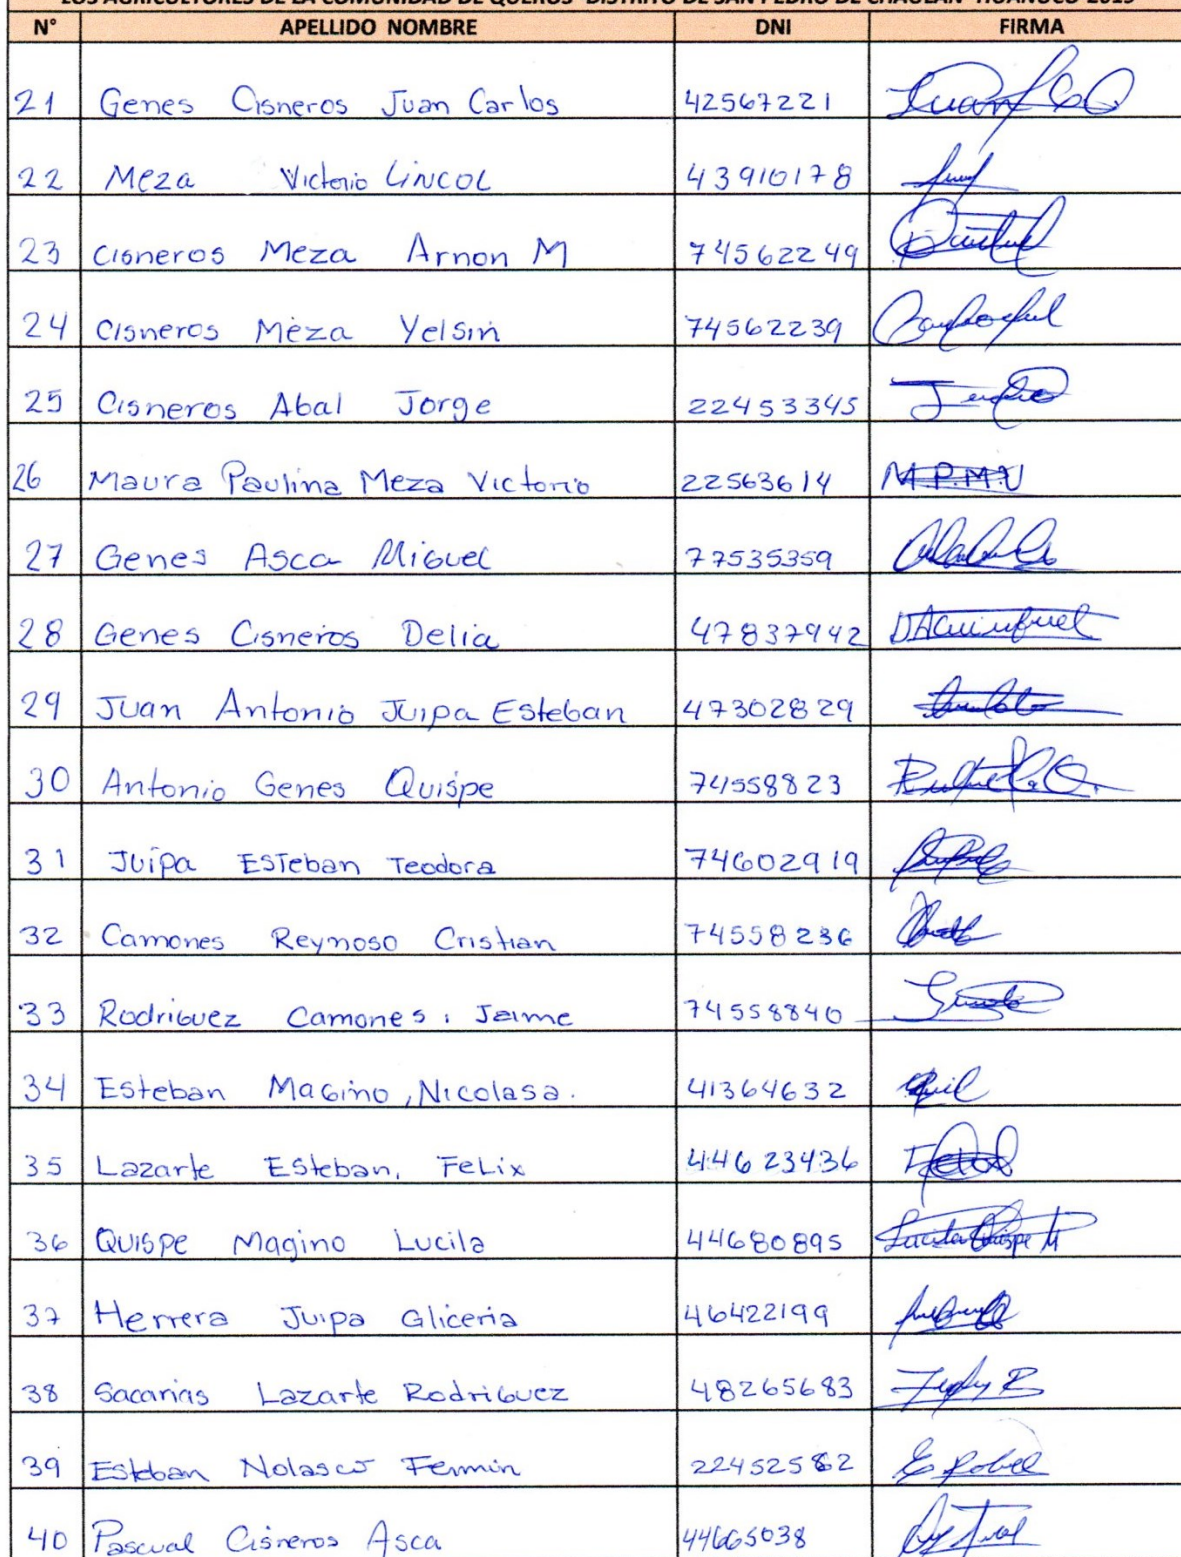 LOS AGRICULTORES DE LA COMUNIDAD DE QUEROS DISTRITO DE SAN PEDRO DE CHAULAN HUANUCO 2019
N° APELLIDO NOMBRE DNI FIRMA
21 Genes Cisneros Juan Carlos 42567221
22 Meza Victorio LINCOL 43910178
23 Cisneros Meza Arnon M 74562249
24 Cisneros Meza Yelsin 74562239
25 Cisneros Abal Jorge 22453345
26 Maura Paulina Meza Victorio 22563614 M.P.M.V
27 Genes Asca Miguel 77535359
28 Genes Cisneros Delia 47837942
29 Juan Antonio Juipa Esteban 47302829
30 Antonio Genes Quispe 74558823
31 Juipa Esteban Teodora 74602919
32 Camones Reynoso Cristian 74558236
33 Rodriguez Camones, Jaime 74558840
34 Esteban Magino, Nicolasa. 41364632
35 Lazarte Esteban, Felix 44623436
36 Quispe Magino Lucila 44680895 Lucila Quispe M
37 Herrera Juipa Gliceria 46422199
38 Sacarias Lazarte Rodriguez 48265683
39 Esteban Nolasco Fermin 22452582
40 Pascual Cisneros Asca 44665038